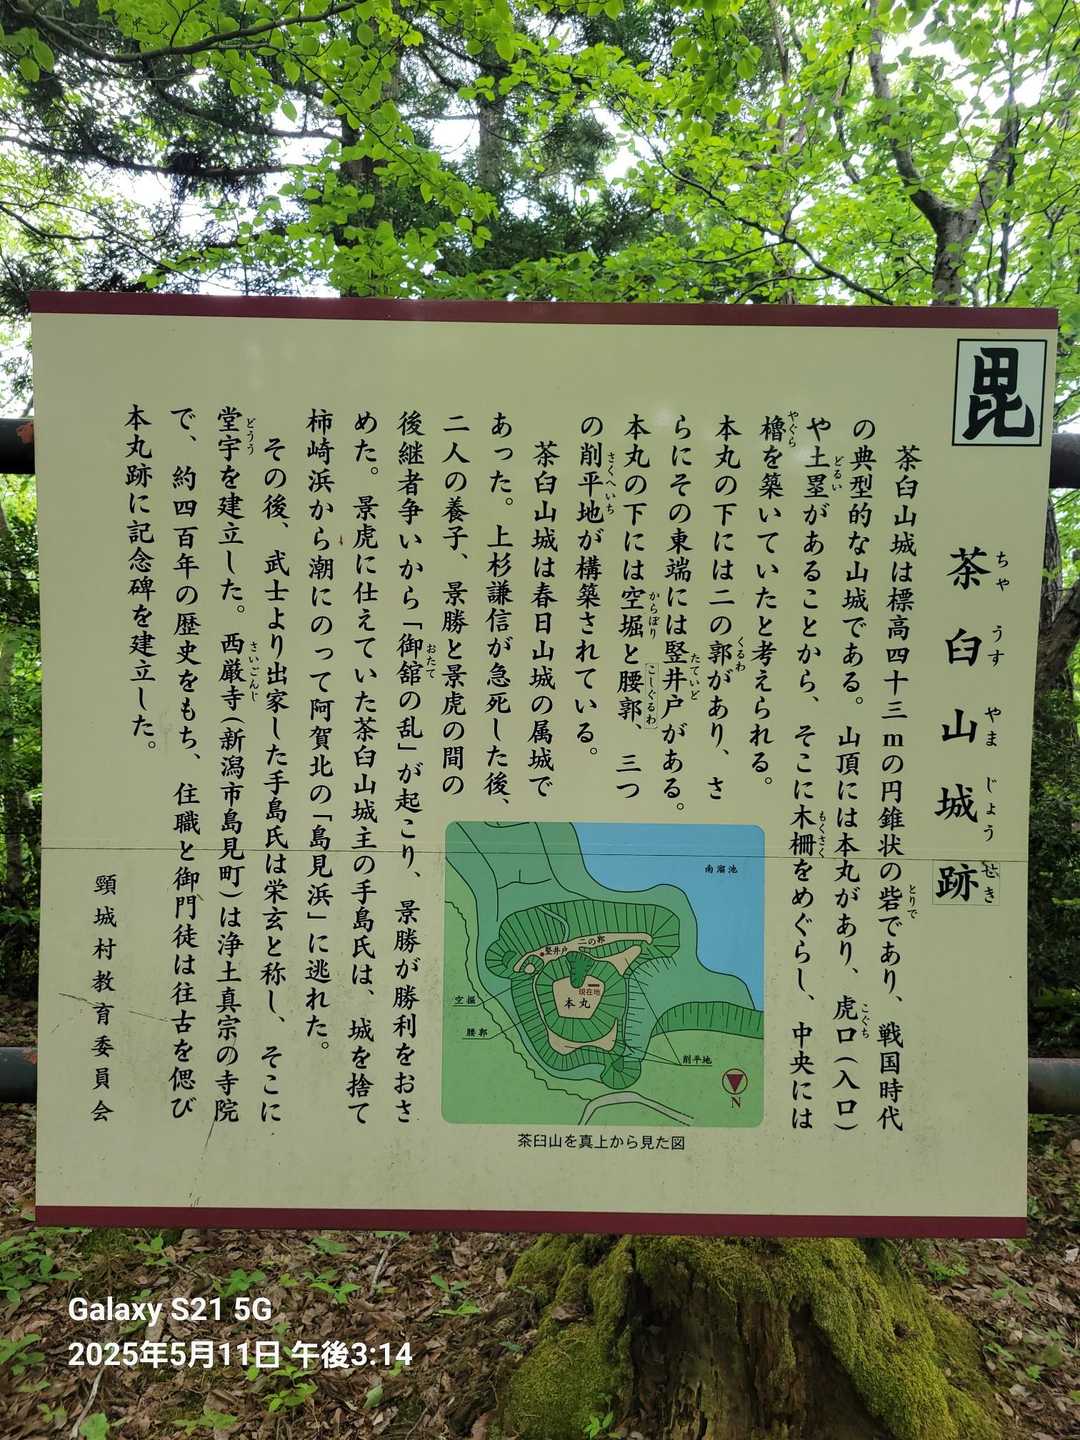 毘
茶臼山城跡
ちゃ うす やま じょう せき
茶臼山城は標高四十三mの円錐状の砦であり、戦国時代
とりで
の典型的な山城である。山頂には本丸があり、虎口(入口)
こぐち
や土塁があることから、そこに木柵をめぐらし、中央には
どるい
もくさく
櫓を築いていたと考えられる。
やぐら
本丸の下には二の郭があり、さ
くるわ
らにその東端には竪井戸がある。
たていど
本丸の下には空堀と腰郭、三つ
からぼり
こしぐるわ
の削平地が構築されている。
さくへいち
茶臼山城は春日山城の属城で
あった。上杉謙信が急死した後、
二人の養子、景勝と景虎の間の
後継者争いから「御舘の乱」が起こり、景勝が勝利をおさ
おたて
めた。景虎に仕えていた茶臼山城主の手島氏は、城を捨て
柿崎浜から潮にのって阿賀北の「島見浜」に逃れた。
その後、武士より出家した手島氏は栄玄と称し、そこに
堂宇を建立した。西厳寺(新潟市島見町)は浄土真宗の寺院
どうう
さいごんじ
で、約四百年の歴史をもち、住職と御門徒は往古を偲び
本丸跡に記念碑を建立した。
頸城村教育委員会
南溜池
二の郭
竪井戸
現在地
本丸
空堀
腰郭
削平地
N
茶臼山を真上から見た図
Galaxy S21 5G
2025年5月11日 午後3:14